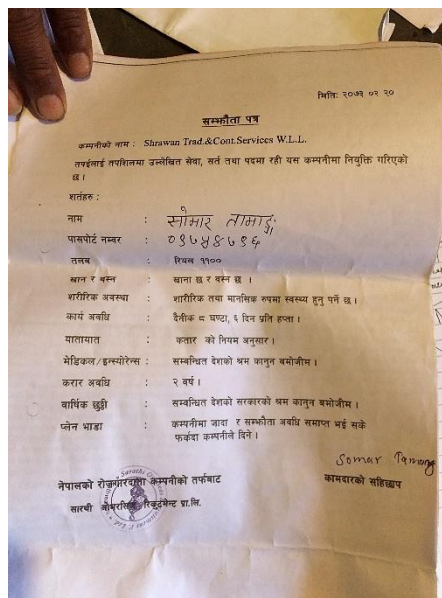 मिति: २०७३ ०२ २०
सम्झौता पत्र
कम्पनीको नाम : Shrawan Trad.&Cont.Services W.L.L.
तपाईलाई तपशिलमा उल्लेखित सेवा, सर्त तथा पदमा रही यस कम्पनीमा नियुक्ति गरिएको
छ ।
शर्तहरु :
नाम : सोमार तामाङ्ग
पासपोर्ट नम्बर : ०९७५४७९६
तलब : रियल ११००
खान र बस्न : खाना छ र बस्न छ ।
शारीरिक अवस्था : शारीरिक तथा मानसिक रुपमा स्वस्थ्य हुनु पर्ने छ ।
कार्य अवधि : दैनीक ८ घण्टा, ६ दिन प्रति हप्ता ।
यातायात : कतार को नियम अनुसार ।
मेडिकल/इन्स्योरेन्स : सम्बन्धित देशको श्रम कानुन बमोजीम ।
करार अवधि : २ वर्ष ।
वार्षिक छुट्टी : सम्बन्धित देशको सरकारको श्रम कानुन बमोजीम ।
प्लेन भाडा : कम्पनीमा जादा र सम्झौता अवधि समाप्त भई सके
फर्कदा कम्पनीले दिने ।
Somar Tamang
नेपालको रोजगारदाता कम्पनीको तर्फबाट कामदारको सहिछाप
सारथी ओभरसिज रिक्रूटमेन्ट प्रा.लि.